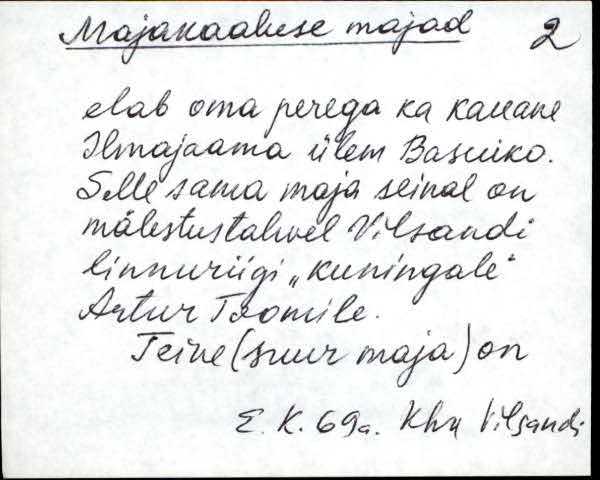 Majakaaluse majad 2
elab oma perega ka kauane
Ilmajaama ülem Basenko.
Selle sama maja seinal on
mälestustahvel Vilsandi
linnuriigi „kuningale“
Artur Toomile.
Teine (suur maja) on
E. K. 69a. Khn Vilsandi